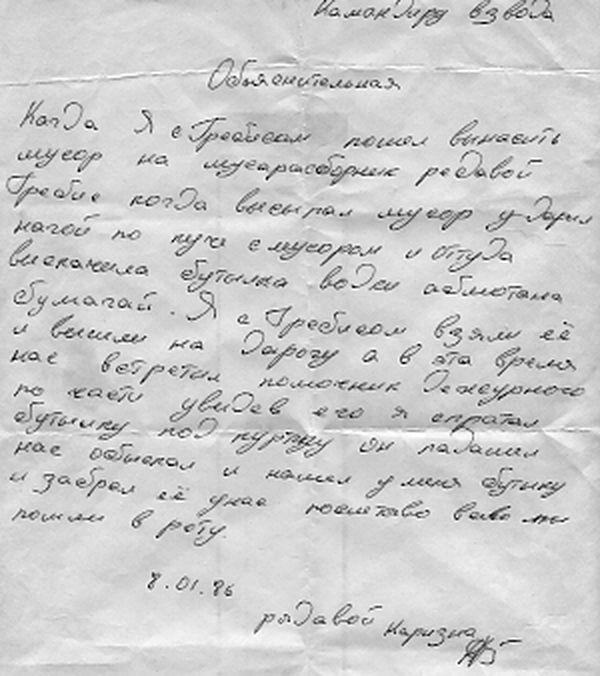 Камандиру взвода
Объяснительная
Когда Я с Гребисом пошел вынасить
мусор на мусарасборник редавой
Гребис когда высыпал мусор ударил
нагой по куче смусором и оттуда
выскачила бутылка водки абмотана
бумагай. Я с Гребисом взяли её
и вышли на дарогу а в эта время
нас встретил помочник дежурного
по части увидев его я спратал
бутылку под куртку он падашел
нас обыскал и нашел уменя бутылку
и забрал её унас послетаво мы
пошли в роту.
8.01.86
рядавой Каризна